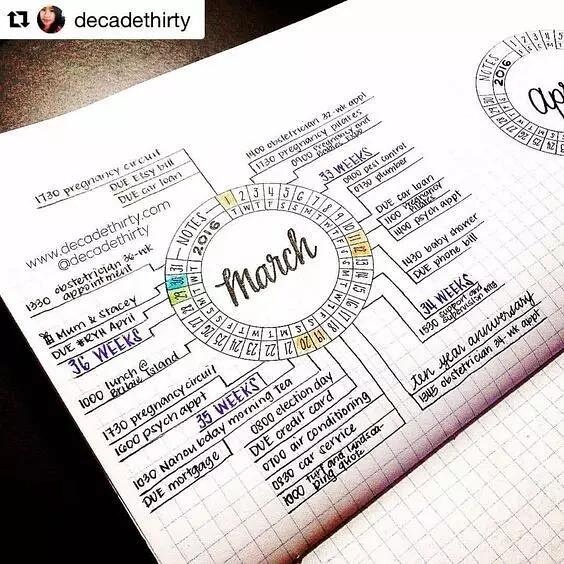 decadethirty
1730 pregnancy circuit
DUE Etsy bill
DUE car loan
www.decadethirty.com
@decadethirty
1330 obstetrician 36-wk
appointment
Mum & Stacey
DUE #RYH April
36 WEEKS
1000 lunch @
Bribie Island
1730 pregnancy circuit
1600 psych appt
35 WEEKS
1030 Nanou bday morning tea
DUE mortgage
0800 election day
DUE credit card
0700 air conditioning
0830 car service
1000 turf and landsca-
ping quote
1400 obstetrician 32-wk appt
1730 pregnancy pilates
0900 Pregnancy and
Babies Expo
33 WEEKS
0900 pest control
0730 plumber
DUE car loan
1100
1400 psych appt
1430 baby shower
DUE phone bill
34 WEEKS
1530 support and
supervision mtg
ten year anniversary
1345 obstetrician 34-wk appt
NOTES
2016
March
1 2 3 4 5 6 7 8 9 10 11 12 13 14 15 16 17 18 19 20 21 22 23 24 25 26 27 28 29 30 31
T W T F S S M T W T F S S M T W T F S S M T W T F S S M T W T
NOTES
2016
Ap
1 2 3 4 5